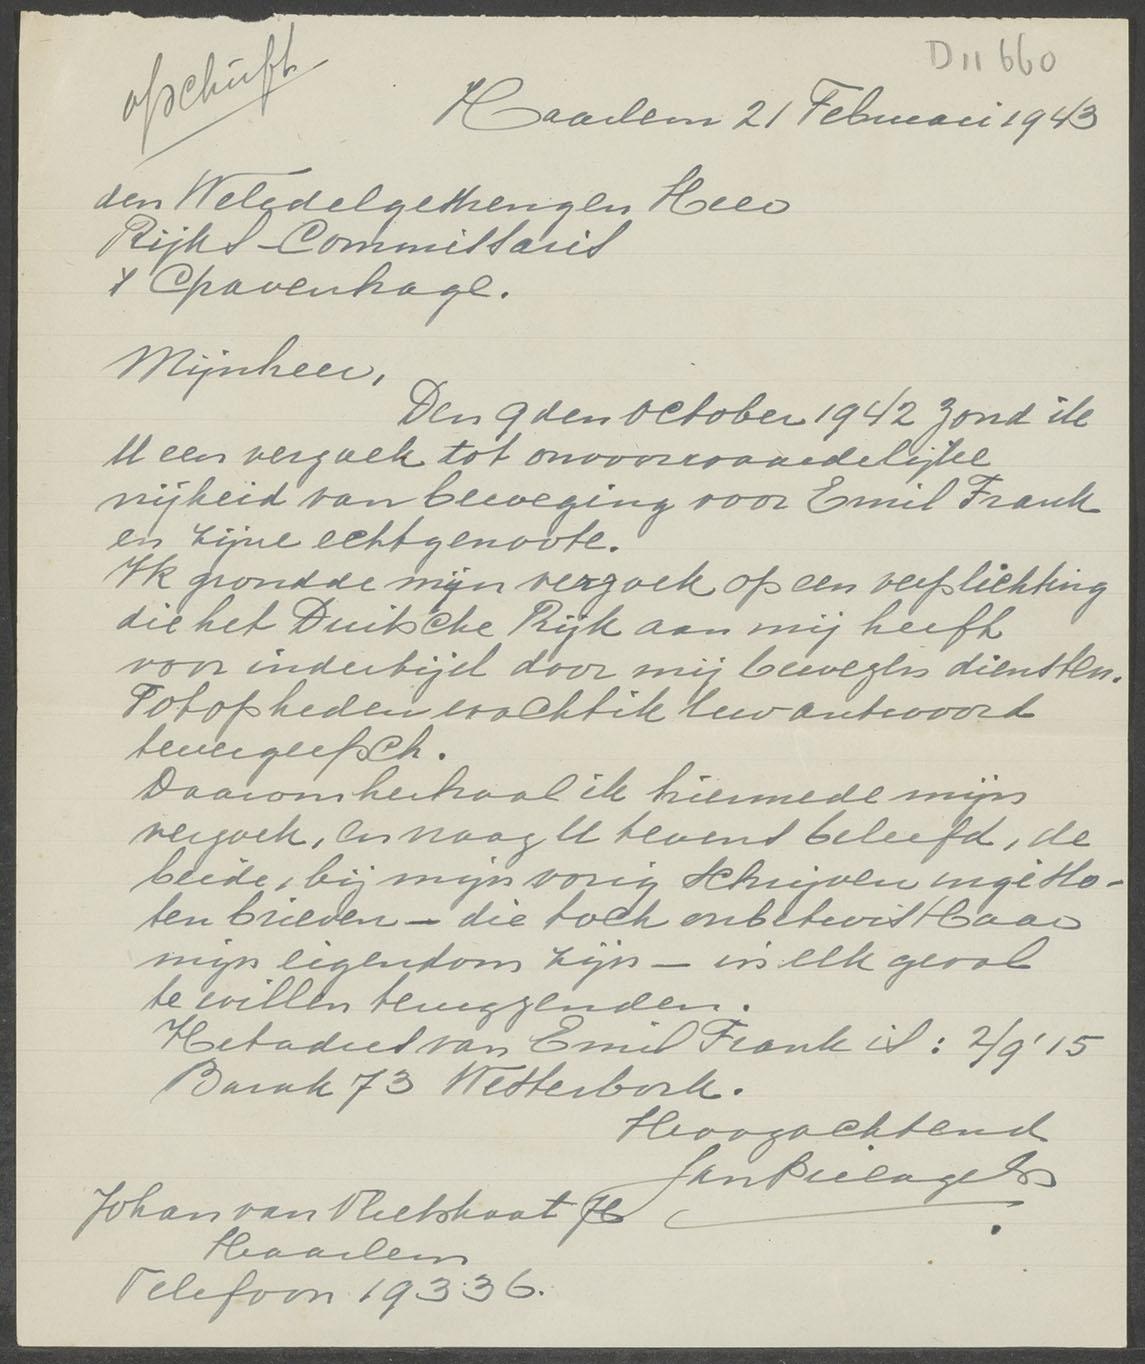 afschrift
D II 660
Haarlem 21 Februari 1943
den Weledelgestrengen Heer
Rijks-Commissaris
's Gravenhage.
Mijnheer,
Den 9den october 1942 zond ik
U een verzoek tot onvoorwaardelijke
vrijheid van beweging voor Emil Frank
en zijne echtgenoote.
Ik grondde mijn verzoek op een verplichting
die het Duitsche Rijk aan mij heeft
voor indertijd door mij bewezen diensten.
Tot op heden wacht ik Uw antwoord
tevergeefsch.
Daarom herhaal ik hiermede mijn
verzoek, en vraag U tevens beleefd, de
beide, bij mijn vorig schrijven ingeslo-
ten brieven – die toch onbetwistbaar
mijn eigendom zijn – in elk geval
te willen terugzenden.
Het adres van Emil Frank is: 2/9' 15
Barak 73 Westerbork.
Hoogachtend
Jan Pielage
Johan van Vlietstraat
Haarlem
Telefoon 19336.